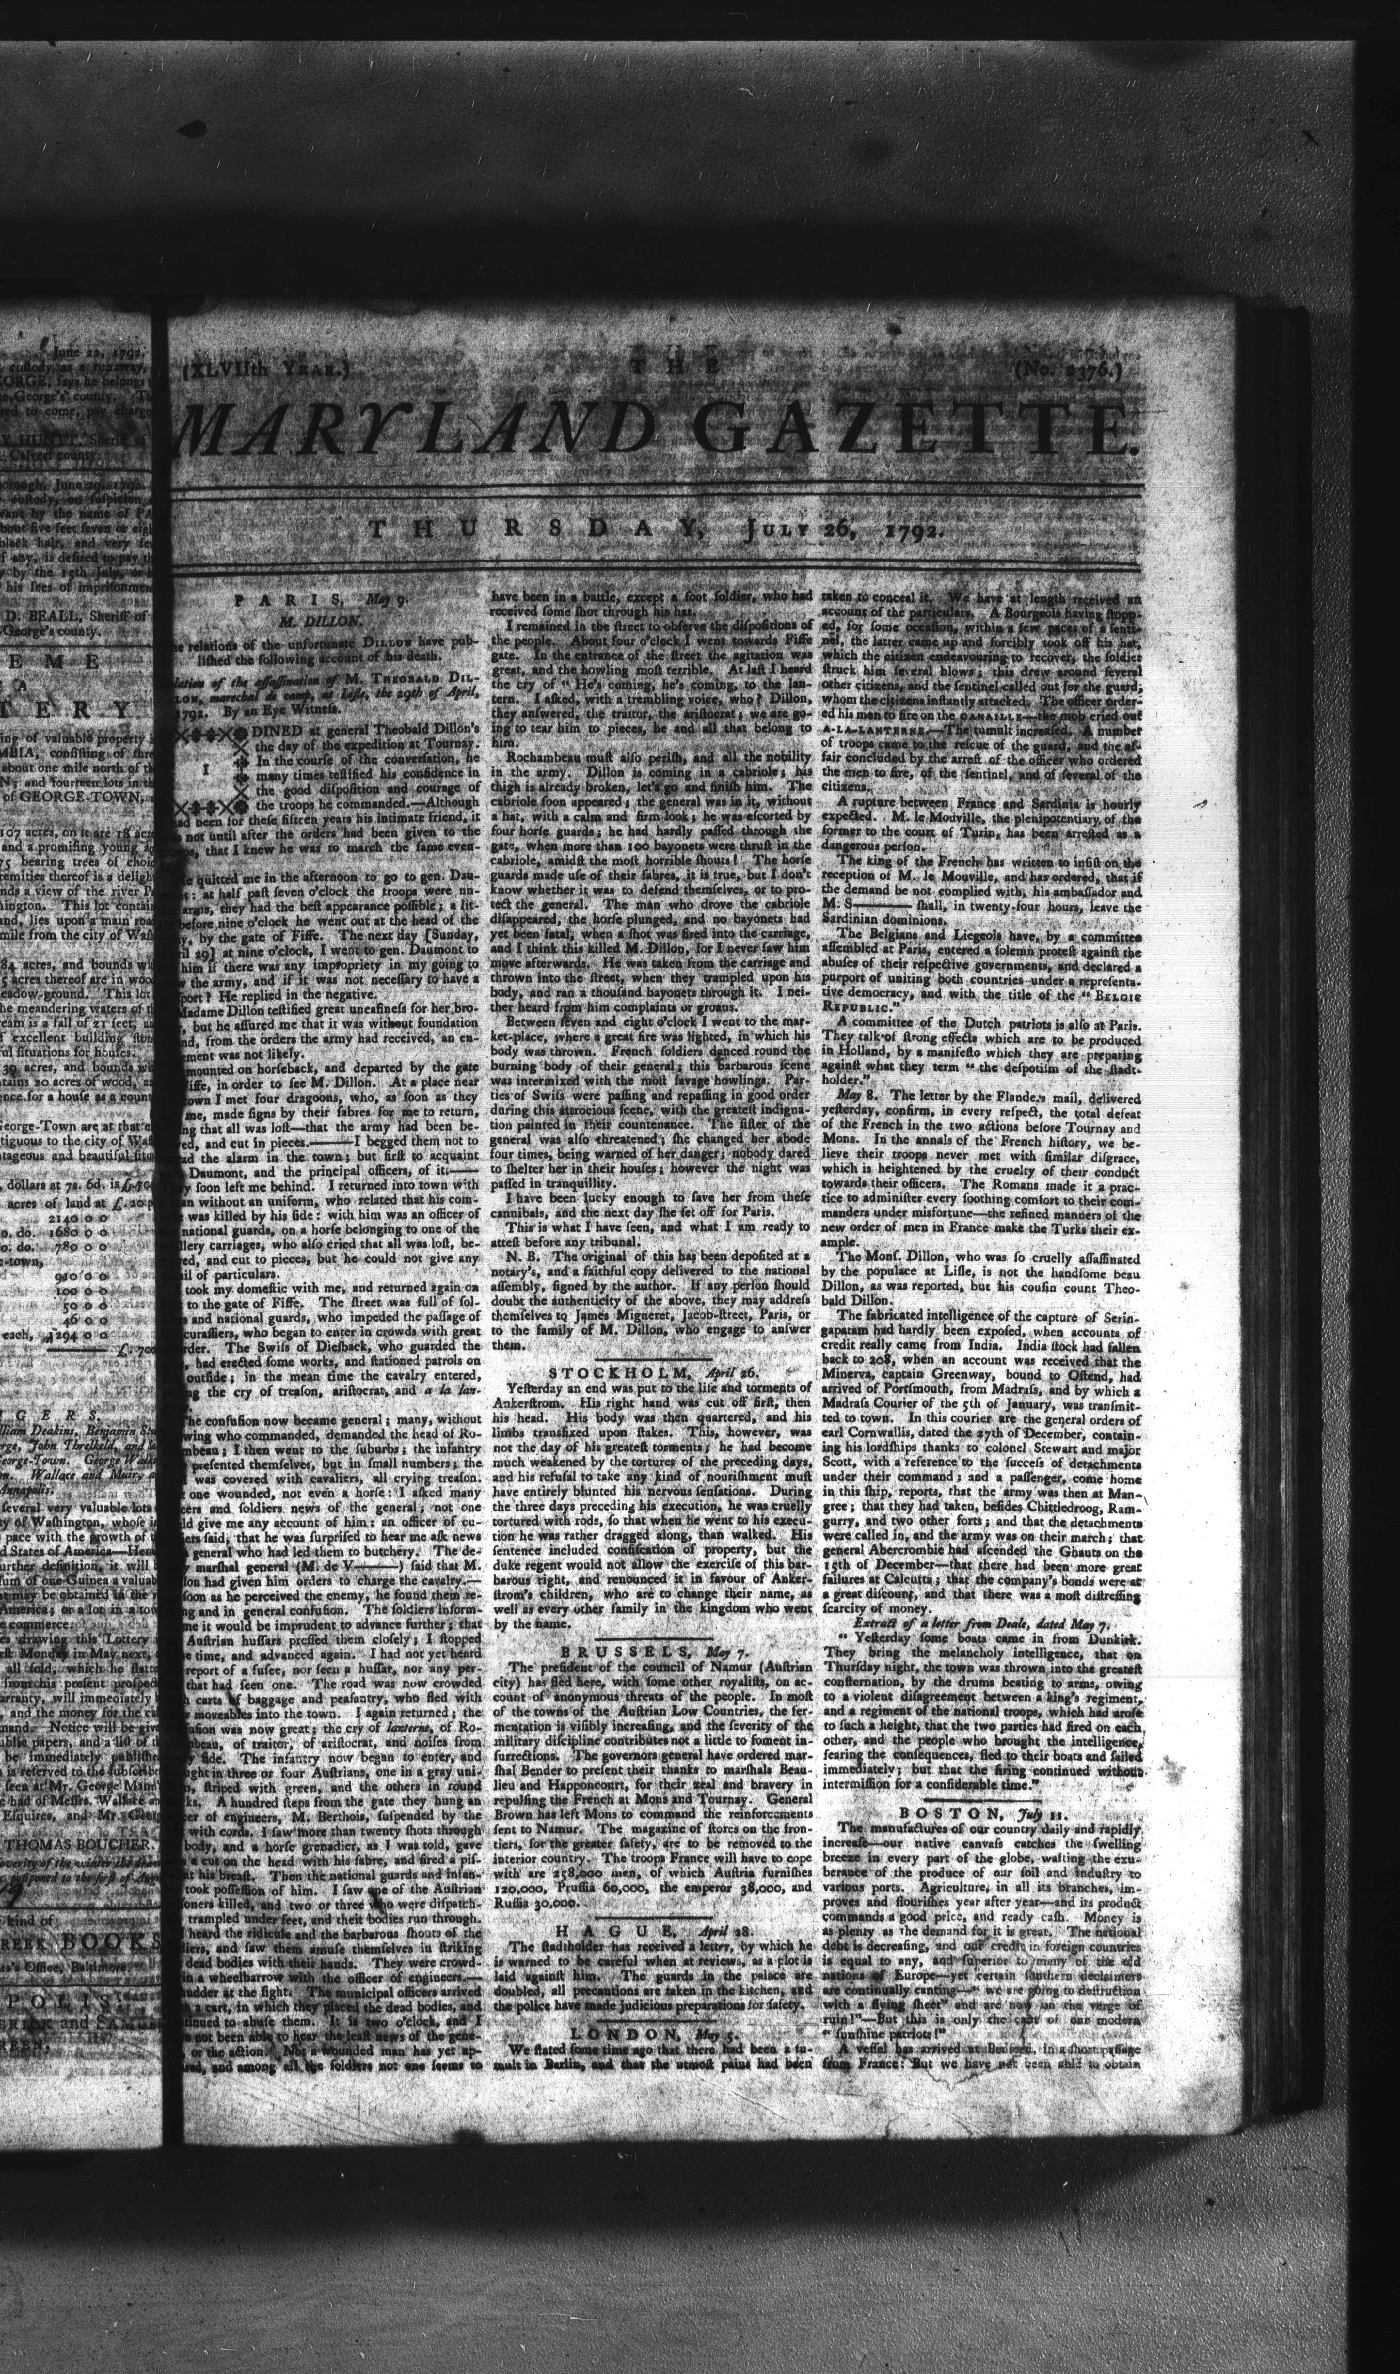 June 22, 1792.
cuſtody as a runaway,
ORGE, ſays he belongs
George's county.
red to come, pay charge
Y HUNTT, Sheriff of
Calvert county.
borough, June 29, 1792.
cuſtody, on ſuſpicion
vant by the name of
bout five feet ſeven or
black hair, and very
if any, is deſired to pay
by the 15th July, 
his fees of impriſonmen
D. BEALL, Sheriff of
George's county.
E M E
A
T E R Y
ing of valuable property
MBIA, conſiſting of
about one mile north of
N; and fourteen lots in
of GEORGE-TOWN,
107 acres, on it are 18
and a promiſing young
75 bearing trees of
remities thereof is a
nds a view of the river
hington. This lot
and, lies upon a main
mile from the city of
84 acres, and bounds
5 acres thereof are in
eadow-ground. This lot
he meandering waters of
ream is a fall of 21 feet,
f excellent building
ful ſituations for houſes.
39 acres, and bounds
tains 20 acres of wood,
ence for a houſe as a
George-Town are at that
tiguous to the city of
ntageous and beautiful
dollars at 7s. 6d. is £.
acres of land at £. 20
2140 0 0
o. do. 1680 0 0
o. do. 789 0 0
e-town,
910 0 0
100 0 0
50 0 0
46 0 0
each, 1294 0 0
G E R S.
lliam Deakins, Benjamin
rge, John Threlkeld, and
eorge-Town. George
on. Wallace and Muir,
Annapolis.
ſeveral very valuable lots
ty of Waſhington, whoſe
pace with the growth of
d States of America
urther definition, it will
ſum of one Guinea a
may be obtained in the
America; or a lot in a
commerce.
drawing this Lottery
rſt Monday in May next,
all ſold, which he
from his preſent
arranty, will immediately
and the money for the
mand. Notice will be
ublic papers, and a liſt of
be immediately
is reſerved to the
ſeen at Mr. George
be had of Meſſrs. Wallace
Eſquires, and Mr.
THOMAS BOUCHER.
kind of
BOOKS
Office, Baltimore.
P O L I S:
and
(XLVIIth YEAR.) T H E (No. 2376.)
MARYLAND GAZETTE.
T H U R S D A Y, JULY 26, 1792.
P A R I S, May 9.
M. DILLON.
relations of the unfortunate DILLON have pub-
liſhed the following account of his death.
lation of the aſſaſſination of M. THEOBALD DIL-
LON, marechal de camp, at Liſle, the 29th of April,
1792. By an Eye Witneſs.
I DINED at general Theobald Dillon's
the day of the expedition at Tournay.
In the courſe of the converſation, he
many times teſtified his confidence in
the good diſpoſition and courage of
the troops he commanded.—Although
had been for theſe fifteen years his intimate friend, it
not until after the orders had been given to the
that I knew he was to march the ſame even-
quitted me in the afternoon to go to gen. Dau-
at half paſt ſeven o'clock the troops were un-
arms, they had the beſt appearance poſſible; a lit-
before nine o'clock he went out at the head of the
by the gate of Fiffe. The next day [Sunday,
29] at nine o'clock, I went to gen. Daumont to
him if there was any impropriety in my going to
the army, and if it was not neceſſary to have a
port? He replied in the negative.
Madame Dillon teſtified great uneaſineſs for her bro-
but he aſſured me that it was without foundation
nd, from the orders the army had received, an en-
ement was not likely.
mounted on horſeback, and departed by the gate
Fiffe, in order to ſee M. Dillon. At a place near
town I met four dragoons, who, as ſoon as they
me, made ſigns by their ſabres for me to return,
ng that all was loſt—that the army had been be-
ed, and cut in pieces.——I begged them not to
ad the alarm in the town; but firſt to acquaint
Daumont, and the principal officers, of it:——
ſoon left me behind. I returned into town with
an without an uniform, who related that his com-
was killed by his ſide: with him was an officer of
national guards, on a horſe belonging to one of the
llery carriages, who alſo cried that all was loſt, be-
ed, and cut to pieces, but he could not give any
il of particulars.
took my domeſtic with me, and returned again on
to the gate of Fiffe. The ſtreet was full of ſol-
and national guards, who impeded the paſſage of
curaſſiers, who began to enter in crowds with great
rder. The Swiſs of Dieſback, who guarded the
had erected ſome works, and ſtationed patrols on
outſide; in the mean time the cavalry entered,
ng the cry of treaſon, ariſtocrat, and a la lan-
The confuſion now became general; many, without
wing who commanded, demanded the head of Ro-
mbeau; I then went to the ſuburbs; the infantry
preſented themſelves, but in ſmall numbers; the
was covered with cavaliers, all crying treaſon.
one wounded, not even a horſe: I aſked many
cers and ſoldiers news of the general; not one
ld give me any account of him: an officer of cu-
iers ſaid, that he was ſurpriſed to hear me aſk news
general who had led them to butchery. The de-
marſhal general (M. de V———) ſaid that M.
lon had given him orders to charge the cavalry.—
ſoon as he perceived the enemy, he found them re-
ng and in general confuſion. The ſoldiers inform-
me it would be imprudent to advance further; that
Auſtrian huſſars preſſed them cloſely; I ſtopped
time, and advanced again. I had not yet heard
report of a fuſee, nor ſeen a huſſar, nor any per-
that had ſeen one. The road was now crowded
carts of baggage and peaſantry, who fled with
moveables into the town. I again returned; the
uſion was now great; the cry of lanterne, of Ro-
beau, of traitor, of ariſtocrat, and noiſes from
ry ſide. The infantry now began to enter, and
ught in three or four Auſtrians, one in a gray uni-
ſtriped with green, and the others in round
ks. A hundred ſteps from the gate they hung an
cer of engineers, M. Berthois, ſuſpended by the
with cords. I ſaw more than twenty ſhots through
body, and a horſe grenadier, as I was told, gave
a cut on the head with his ſabre, and fired a piſ-
at his breaſt. Then the national guards and infan-
took poſſeſſion of him. I ſaw one of the Auſtrian
ſoners killed, and two or three who were diſpatch-
trampled under feet, and their bodies run through.
heard the ridicule and the barbarous ſhouts of the
diers, and ſaw them amuſe themſelves in ſtriking
dead bodies with their hands. They were crowd-
in a wheelbarrow with the officer of engineers.—
udder at the ſight. The municipal officers arrived
a cart, in which they placed the dead bodies, and
tinued to abuſe them. It is two o'clock, and I
not been able to hear the leaſt news of the gene-
or the action. Not a wounded man has yet ap-
red, and among all the ſoldiers not one ſeems to
have been in a battle, except a foot ſoldier, who had
received ſome ſhot through his hat.
I remained in the ſtreet to obſerve the diſpoſitions of
the people. About four o'clock I went towards Fiffe
gate. In the entrance of the ſtreet the agitation was
great, and the howling moſt terrible. At laſt I heard
the cry of " He's coming, he's coming, to the lan-
tern. I aſked, with a trembling voice, who? Dillon,
they anſwered, the traitor, the ariſtocrat; we are go-
ing to tear him to pieces, he and all that belong to
him.
Rochambeau muſt alſo periſh, and all the nobility
in the army. Dillon is coming in a cabriole; his
thigh is already broken, let's go and finiſh him. The
cabriole ſoon appeared; the general was in it, without
a hat, with a calm and firm look; he was eſcorted by
four horſe guards; he had hardly paſſed through the
gate, when more than 100 bayonets were thruſt in the
cabriole, amidſt the moſt horrible ſhouts! The horſe
guards made uſe of their ſabres, it is true, but I don't
know whether it was to defend themſelves, or to pro-
tect the general. The man who drove the cabriole
diſappeared, the horſe plunged, and no bayonets had
yet been fatal, when a ſhot was fired into the carriage,
and I think this killed M. Dillon, for I never ſaw him
move afterwards. He was taken from the carriage and
thrown into the ſtreet, when they trampled upon his
body, and ran a thouſand bayonets through it. I nei-
ther heard from him complaints or groans.
Between ſeven and eight o'clock I went to the mar-
ket-place, where a great fire was lighted, in which his
body was thrown. French ſoldiers danced round the
burning body of their general; this barbarous ſcene
was intermixed with the moſt ſavage howlings. Par-
ties of Swiſs were paſſing and repaſſing in good order
during this atrocious ſcene, with the greateſt indigna-
tion painted in their countenance. The ſiſter of the
general was alſo threatened; ſhe changed her abode
four times, being warned of her danger; nobody dared
to ſhelter her in their houſes; however the night was
paſſed in tranquillity.
I have been lucky enough to ſave her from theſe
cannibals, and the next day ſhe ſet off for Paris.
This is what I have ſeen, and what I am ready to
atteſt before any tribunal.
N. B. The original of this has been depoſited at a
notary's, and a faithful copy delivered to the national
aſſembly, ſigned by the author. If any perſon ſhould
doubt the authenticity of the above, they may addreſs
themſelves to James Migneret, Jacob-ſtreet, Paris, or
to the family of M. Dillon, who engage to anſwer
them.
S T O C K H O L M, April 26.
Yeſterday an end was put to the life and torments of
Ankerſtrom. His right hand was cut off firſt, then
his head. His body was then quartered, and his
limbs transfixed upon ſtakes. This, however, was
not the day of his greateſt torments; he had become
much weakened by the tortures of the preceding days,
and his refuſal to take any kind of nouriſhment muſt
have entirely blunted his nervous ſenſations. During
the three days preceding his execution, he was cruelly
tortured with rods, ſo that when he went to his execu-
tion he was rather dragged along, than walked. His
ſentence included confiſcation of property, but the
duke regent would not allow the exerciſe of this bar-
barous right, and renounced it in favour of Anker-
ſtrom's children, who are to change their name, as
well as every other family in the kingdom who went
by the name.
B R U S S E L S, May 7.
The preſident of the council of Namur (Auſtrian
city) has fled here, with ſome other royaliſts, on ac-
count of anonymous threats of the people. In moſt
of the towns of the Auſtrian Low Countries, the fer-
mentation is viſibly increaſing, and the ſeverity of the
military diſcipline contributes not a little to foment in-
ſurrections. The governors general have ordered mar-
ſhal Bender to preſent their thanks to marſhals Beau-
lieu and Happoncourt, for their zeal and bravery in
repulſing the French at Mons and Tournay. General
Brown has left Mons to command the reinforcements
ſent to Namur. The magazine of ſtores on the fron-
tiers, for the greater ſafety, are to be removed to the
interior country. The troops France will have to cope
with are 258,000 men, of which Auſtria furniſhes
120,000, Pruſſia 60,000, the emperor 38,000, and
Ruſſia 30,000.
H A G U E, April 28.
The ſtadtholder has received a letter, by which he
is warned to be careful when at reviews, as a plot is
laid againſt him. The guards in the palace are
doubled, all precautions are taken in the kitchen, and
the police have made judicious preparations for ſafety.
L O N D O N, May 5.
We ſtated ſome time ago that there had been a tu-
mult in Berlin, and that the utmoſt pains had been
taken to conceal it. We have at length received an
account of the particulars. A Bourgeois having ſtopp-
ed, for ſome occaſion, within a few paces of a ſenti-
nel, the latter came up and forcibly took off his hat,
which the citizen endeavouring to recover, the ſoldier
ſtruck him ſeveral blows; this drew around ſeveral
other citizens, and the ſentinel called out for the guard;
whom the citizens inſtantly attacked. The officer order-
ed his men to fire on the CANAILLE—the mob cried out
A-LA-LANTERNE.—The tumult increaſed. A number
of troops came to the reſcue of the guard, and the af-
fair concluded by the arreſt of the officer who ordered
the men to fire, of the ſentinel, and of ſeveral of the
citizens.
A rupture between France and Sardinia is hourly
expected. M. le Mouville, the plenipotentiary of the
former to the court of Turin, has been arreſted as a
dangerous perſon.
The king of the French has written to inſiſt on the
reception of M. le Mouville, and has ordered, that if
the demand be not complied with, his ambaſſador and
M: S——— ſhall, in twenty-four hours, leave the
Sardinian dominions.
The Belgians and Liegeois have, by a committee
aſſembled at Paris, entered a ſolemn proteſt againſt the
abuſes of their reſpective governments, and declared a
purport of uniting both countries under a repreſenta-
tive democracy, and with the title of the " BELGIC
REPUBLIC."
A committee of the Dutch patriots is alſo at Paris.
They talk of ſtrong effects which are to be produced
in Holland, by a manifeſto which they are preparing
againſt what they term " the deſpotiſm of the ſtadt-
holder."
May 8. The letter by the Flanders mail, delivered
yeſterday, confirm, in every reſpect, the total defeat
of the French in the two actions before Tournay and
Mons. In the annals of the French hiſtory, we be-
lieve their troops never met with ſimilar diſgrace,
which is heightened by the cruelty of their conduct
towards their officers. The Romans made it a prac-
tice to adminiſter every ſoothing comfort to their com-
manders under misfortune—the refined manners of the
new order of men in France make the Turks their ex-
ample.
The Monſ. Dillon, who was ſo cruelly aſſaſſinated
by the populace at Liſle, is not the handſome beau
Dillon, as was reported, but his couſin count Theo-
bald Dillon.
The fabricated intelligence of the capture of Serin-
gapatam had hardly been expoſed, when accounts of
credit really came from India. India ſtock had fallen
back to 208, when an account was received that the
Minerva, captain Greenway, bound to Oſtend, had
arrived of Portſmouth, from Madraſs, and by which a
Madraſs Courier of the 5th of January, was tranſmit-
ted to town. In this courier are the general orders of
earl Cornwallis, dated the 27th of December, contain-
ing his lordſhips thanks to colonel Stewart and major
Scott, with a reference to the ſucceſs of detachments
under their command; and a paſſenger, come home
in this ſhip, reports, that the army was then at Man-
gree; that they had taken, beſides Chittledroog, Ram-
gurry, and two other forts; and that the detachments
were called in, and the army was on their march; that
general Abercrombie had aſcended the Ghauts on the
15th of December—that there had been more great
failures at Calcutta; that the company's bonds were at
a great diſcount, and that there was a moſt diſtreſſing
ſcarcity of money.
Extract of a letter from Deale, dated May 7.
" Yeſterday ſome boats came in from Dunkirk.
They bring the melancholy intelligence, that on
Thurſday night, the town was thrown into the greateſt
conſternation, by the drums beating to arms, owing
to a violent diſagreement between a king's regiment,
and a regiment of the national troops, which had aroſe
to ſuch a height, that the two parties had fired on each
other, and the people who brought the intelligence,
fearing the conſequences, fled to their boats and ſailed
immediately; but that the firing continued without
intermiſſion for a conſiderable time."
B O S T O N, July 11.
The manufactures of our country daily and rapidly
increaſe—our native canvaſs catches the ſwelling
breeze in every part of the globe, wafting the exu-
berance of the produce of our ſoil and induſtry to
various ports. Agriculture, in all its branches, im-
proves and flouriſhes year after year—and its product
commands a good price, and ready caſh. Money is
as plenty as the demand for it is great. The national
debt is decreaſing, and our credit in foreign countries
is equal to any, and ſuperior to many of the old
nations of Europe—yet certain ſouthern declaimers
are continually canting—" we are going to deſtruction
with a flying ſheet" and are now on the verge of
ruin!"—But this is only the cant of our modern
" ſunſhine patriots!"
A veſſel has arrived at Bedford, in a ſhort paſſage
from France: But we have not been able to obtain